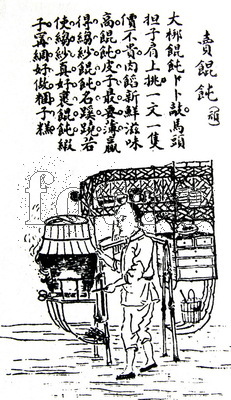 賣餛飩
大梆餛飩卜卜敲馬頭
担子肩上挑一文一隻
價不貴肉餡新鮮滋味
高餛飩皮子最要薄贏
得縐紗餛飩名蹊蹺若
使縐紗真好裹餛飩緞
子甯綢好做糰子糕